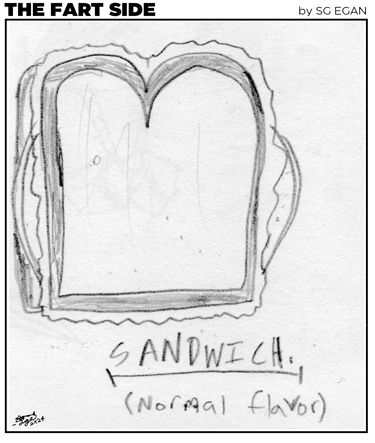 THE FART SIDE
by SG EGAN
SANDWICH.
(Normal flavor)